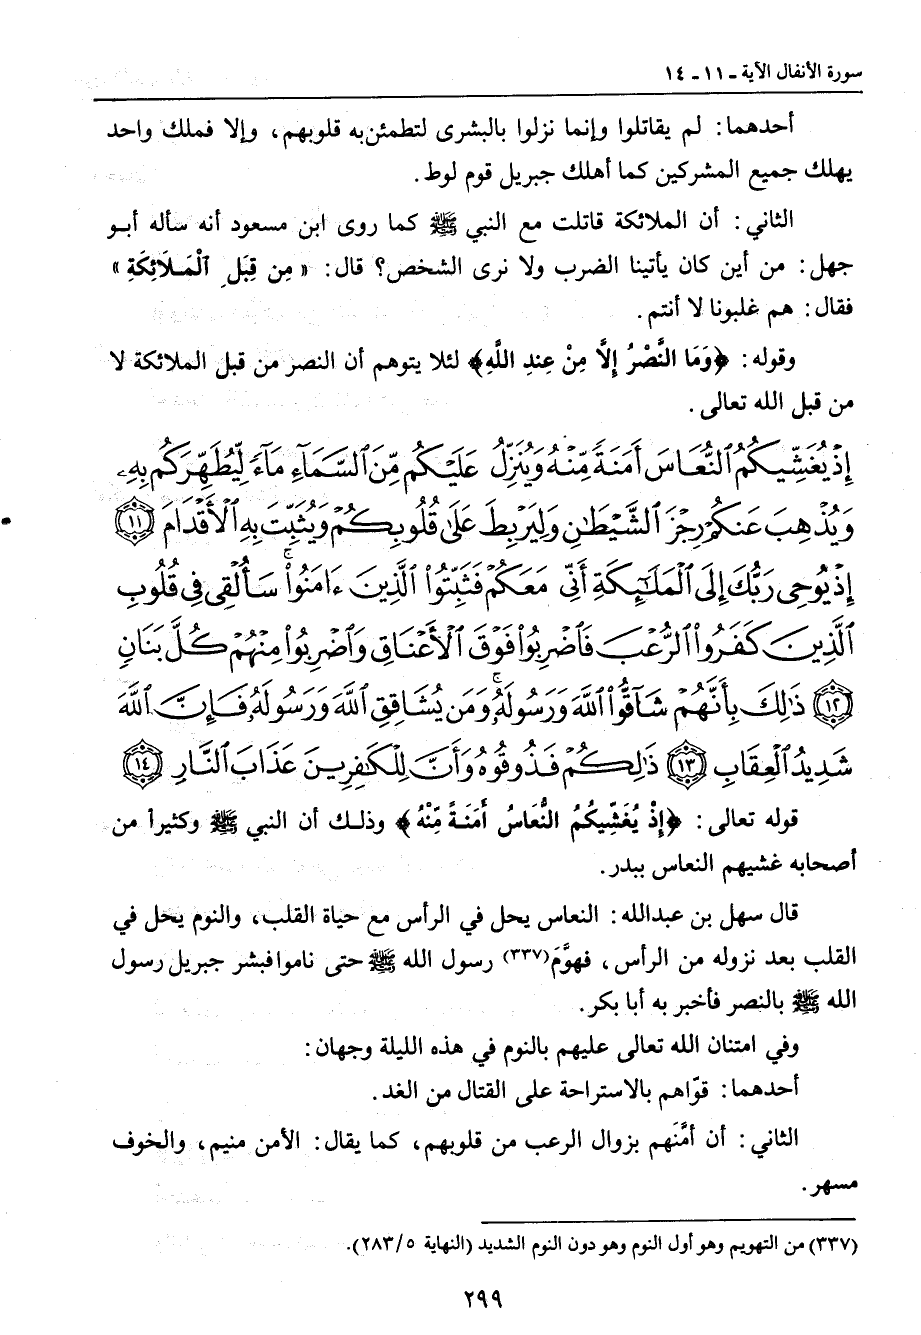 سورة الأنفال الآية ـ ١١ ـ ١٤
أحدهما: لم يقاتلوا وإنما نزلوا بالبشرى لتطمئن به قلوبهم، وإلا فملك واحد
يهلك جميع المشركين كما أهلك جبريل قوم لوط.
الثاني: أن الملائكة قاتلت مع النبي ﷺ كما روى ابن مسعود أنه سأله أبو
جهل: من أين كان يأتينا الضرب ولا نرى الشخص؟ قال: «مِن قِبَلِ الْمَلَائِكَةِ»
فقال: هم غلبونا لا أنتم.
وقوله: ﴿وَمَا النَّصْرُ إِلَّا مِنْ عِندِ اللَّهِ﴾ لئلا يتوهم أن النصر من قبل الملائكة لا
من قبل الله تعالى.
إِذْ يُغَشِّيكُمُ ٱلنُّعَاسَ أَمَنَةً مِّنْهُ وَيُنَزِّلُ عَلَيْكُم مِّنَ ٱلسَّمَآءِ مَآءً لِّيُطَهِّرَكُم بِهِۦ
وَيُذْهِبَ عَنكُمْ رِجْزَ ٱلشَّيْطَٰنِ وَلِيَرْبِطَ عَلَىٰ قُلُوبِكُمْ وَيُثَبِّتَ بِهِ ٱلْأَقْدَامَ ﴿١١﴾
إِذْ يُوحِى رَبُّكَ إِلَى ٱلْمَلَٰٓئِكَةِ أَنِّى مَعَكُمْ فَثَبِّتُوا۟ ٱلَّذِينَ ءَامَنُوا۟ ۚ سَأُلْقِى فِى قُلُوبِ
ٱلَّذِينَ كَفَرُوا۟ ٱلرُّعْبَ فَٱضْرِبُوا۟ فَوْقَ ٱلْأَعْنَاقِ وَٱضْرِبُوا۟ مِنْهُمْ كُلَّ بَنَانٍ
﴿١٢﴾ ذَٰلِكَ بِأَنَّهُمْ شَآقُّوا۟ ٱللَّهَ وَرَسُولَهُۥ ۚ وَمَن يُشَاقِقِ ٱللَّهَ وَرَسُولَهُۥ فَإِنَّ ٱللَّهَ
شَدِيدُ ٱلْعِقَابِ ﴿١٣﴾ ذَٰلِكُمْ فَذُوقُوهُ وَأَنَّ لِلْكَٰفِرِينَ عَذَابَ ٱلنَّارِ ﴿١٤﴾
قوله تعالى: ﴿إِذْ يُغَشِّيكُمُ النُّعَاسُ أَمَنَةً مِّنْهُ﴾ وذلك أن النبي ﷺ وكثيراً من
أصحابه غشيهم النعاس ببدر.
قال سهل بن عبدالله: النعاس يحل في الرأس مع حياة القلب، والنوم يحل في
القلب بعد نزوله من الرأس، فهوَّمَ(٣٣٧) رسول الله ﷺ حتى ناموا فبشر جبريل رسول
الله ﷺ بالنصر فأخبر به أبا بكر.
وفي امتنان الله تعالى عليهم بالنوم في هذه الليلة وجهان:
أحدهما: قوّاهم بالاستراحة على القتال من الغد.
الثاني: أن أمَّنَهم بزوال الرعب من قلوبهم، كما يقال: الأمن منيم، والخوف
مسهر.
(٣٣٧) من التهويم وهو أول النوم وهو دون النوم الشديد (النهاية ٢٨٣/٥).
٢٩٩